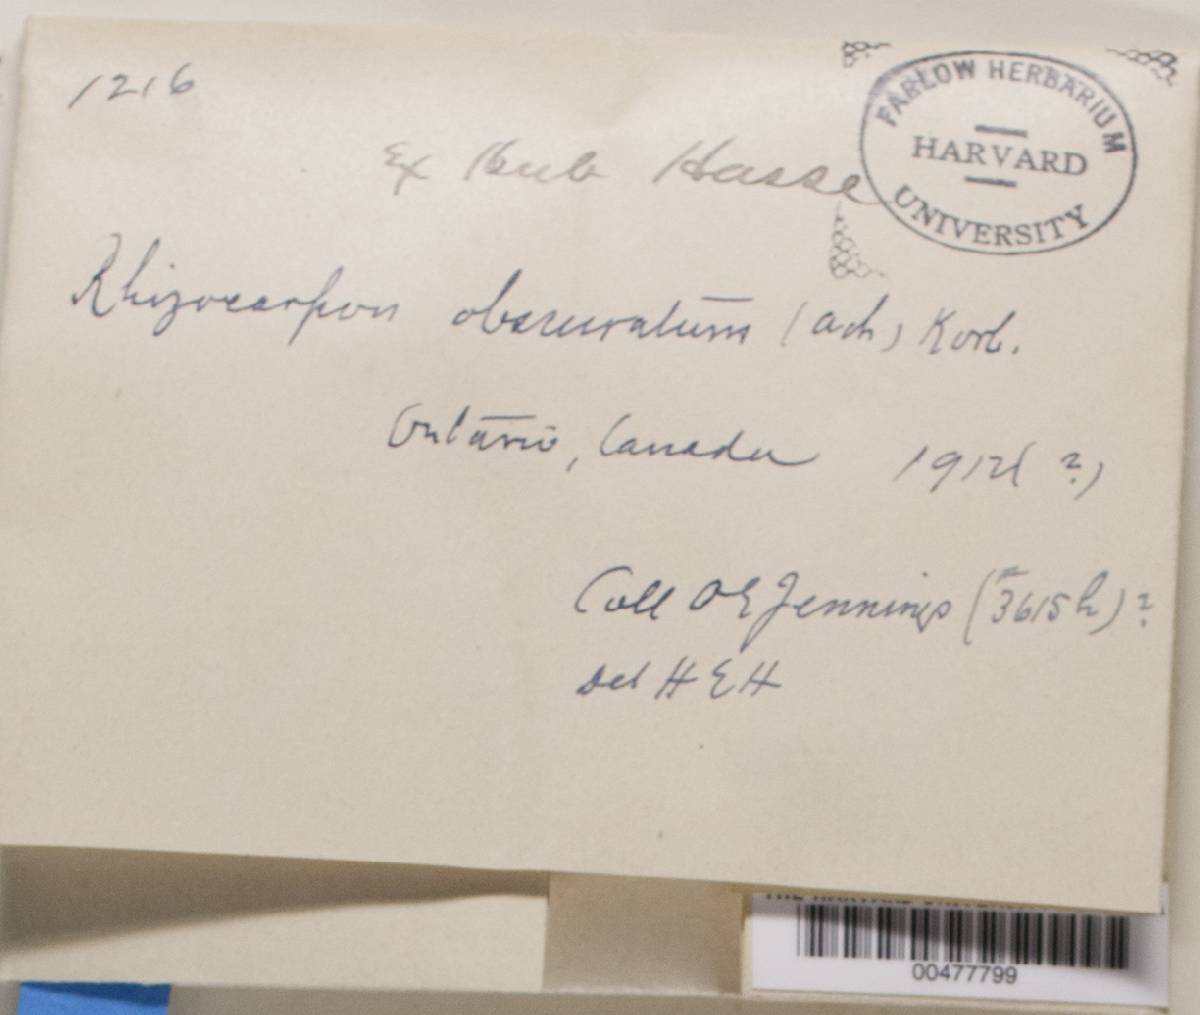 1216
FARLOW HERBARIUM
HARVARD
UNIVERSITY
Ex Herb Hasse
Rhizocarpon obscuratum (Ach) Korb.
Ontario, Canada 1912(?)
Coll O E Jennings (3615h)?
Det H E H
00477799